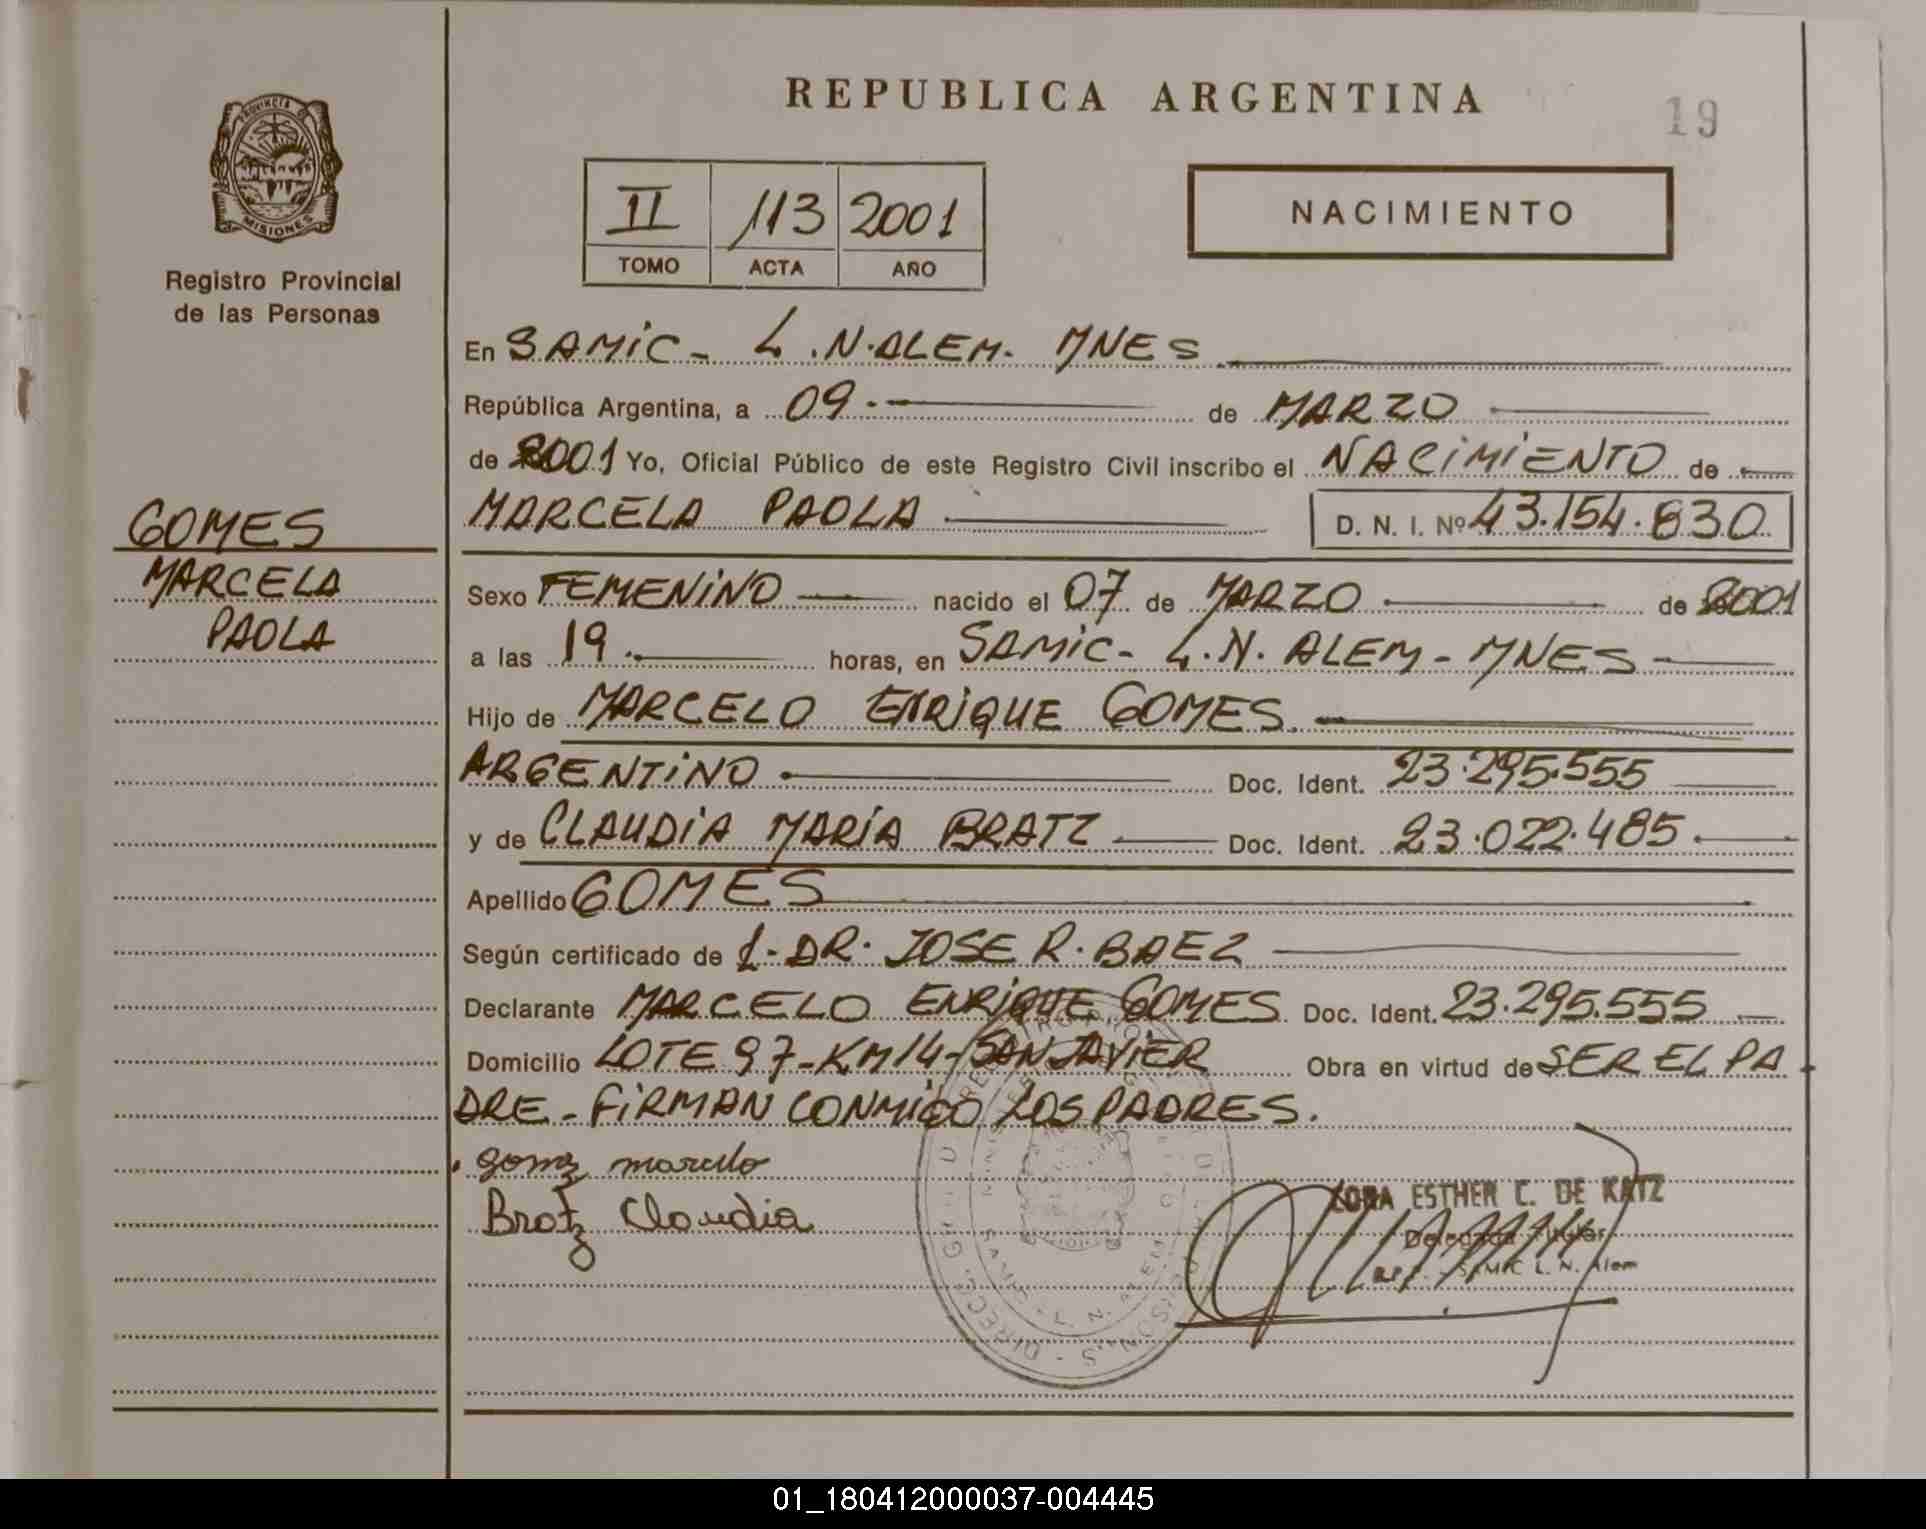 REPUBLICA ARGENTINA
19
PROVINCIA DE
MISIONES
Registro Provincial
de las Personas
II 113 2001
TOMO ACTA AÑO
NACIMIENTO
En SAMIC - L.N.ALEM. MNES
República Argentina, a 09 de MARZO
de 2001 Yo, Oficial Público de este Registro Civil inscribo el NACIMIENTO de
MARCELA PAOLA D. N. I. Nº 43.154.830
GOMES
MARCELA
PAOLA
Sexo FEMENINO nacido el 07 de MARZO de 2001
a las 19 horas, en SAMIC - L.N. ALEM - MNES
Hijo de MARCELO ENRIQUE GOMES
ARGENTINO Doc. Ident. 23.295.555
y de CLAUDIA MARIA BRATZ Doc. Ident. 23.022.485
Apellido GOMES
Según certificado de L-DR. JOSE R. BAEZ
Declarante MARCELO ENRIQUE GOMES Doc. Ident. 23.295.555
Domicilio LOTE 97-KM14-SAN JAVIER Obra en virtud de SER EL PA
DRE - FIRMAN CONMIGO LOS PADRES.
gomez marcelo
Bratz Claudia
ESTHER C. DE KATZ
Delegada Titular
SAMIC L. N. Alem
01_180412000037-004445